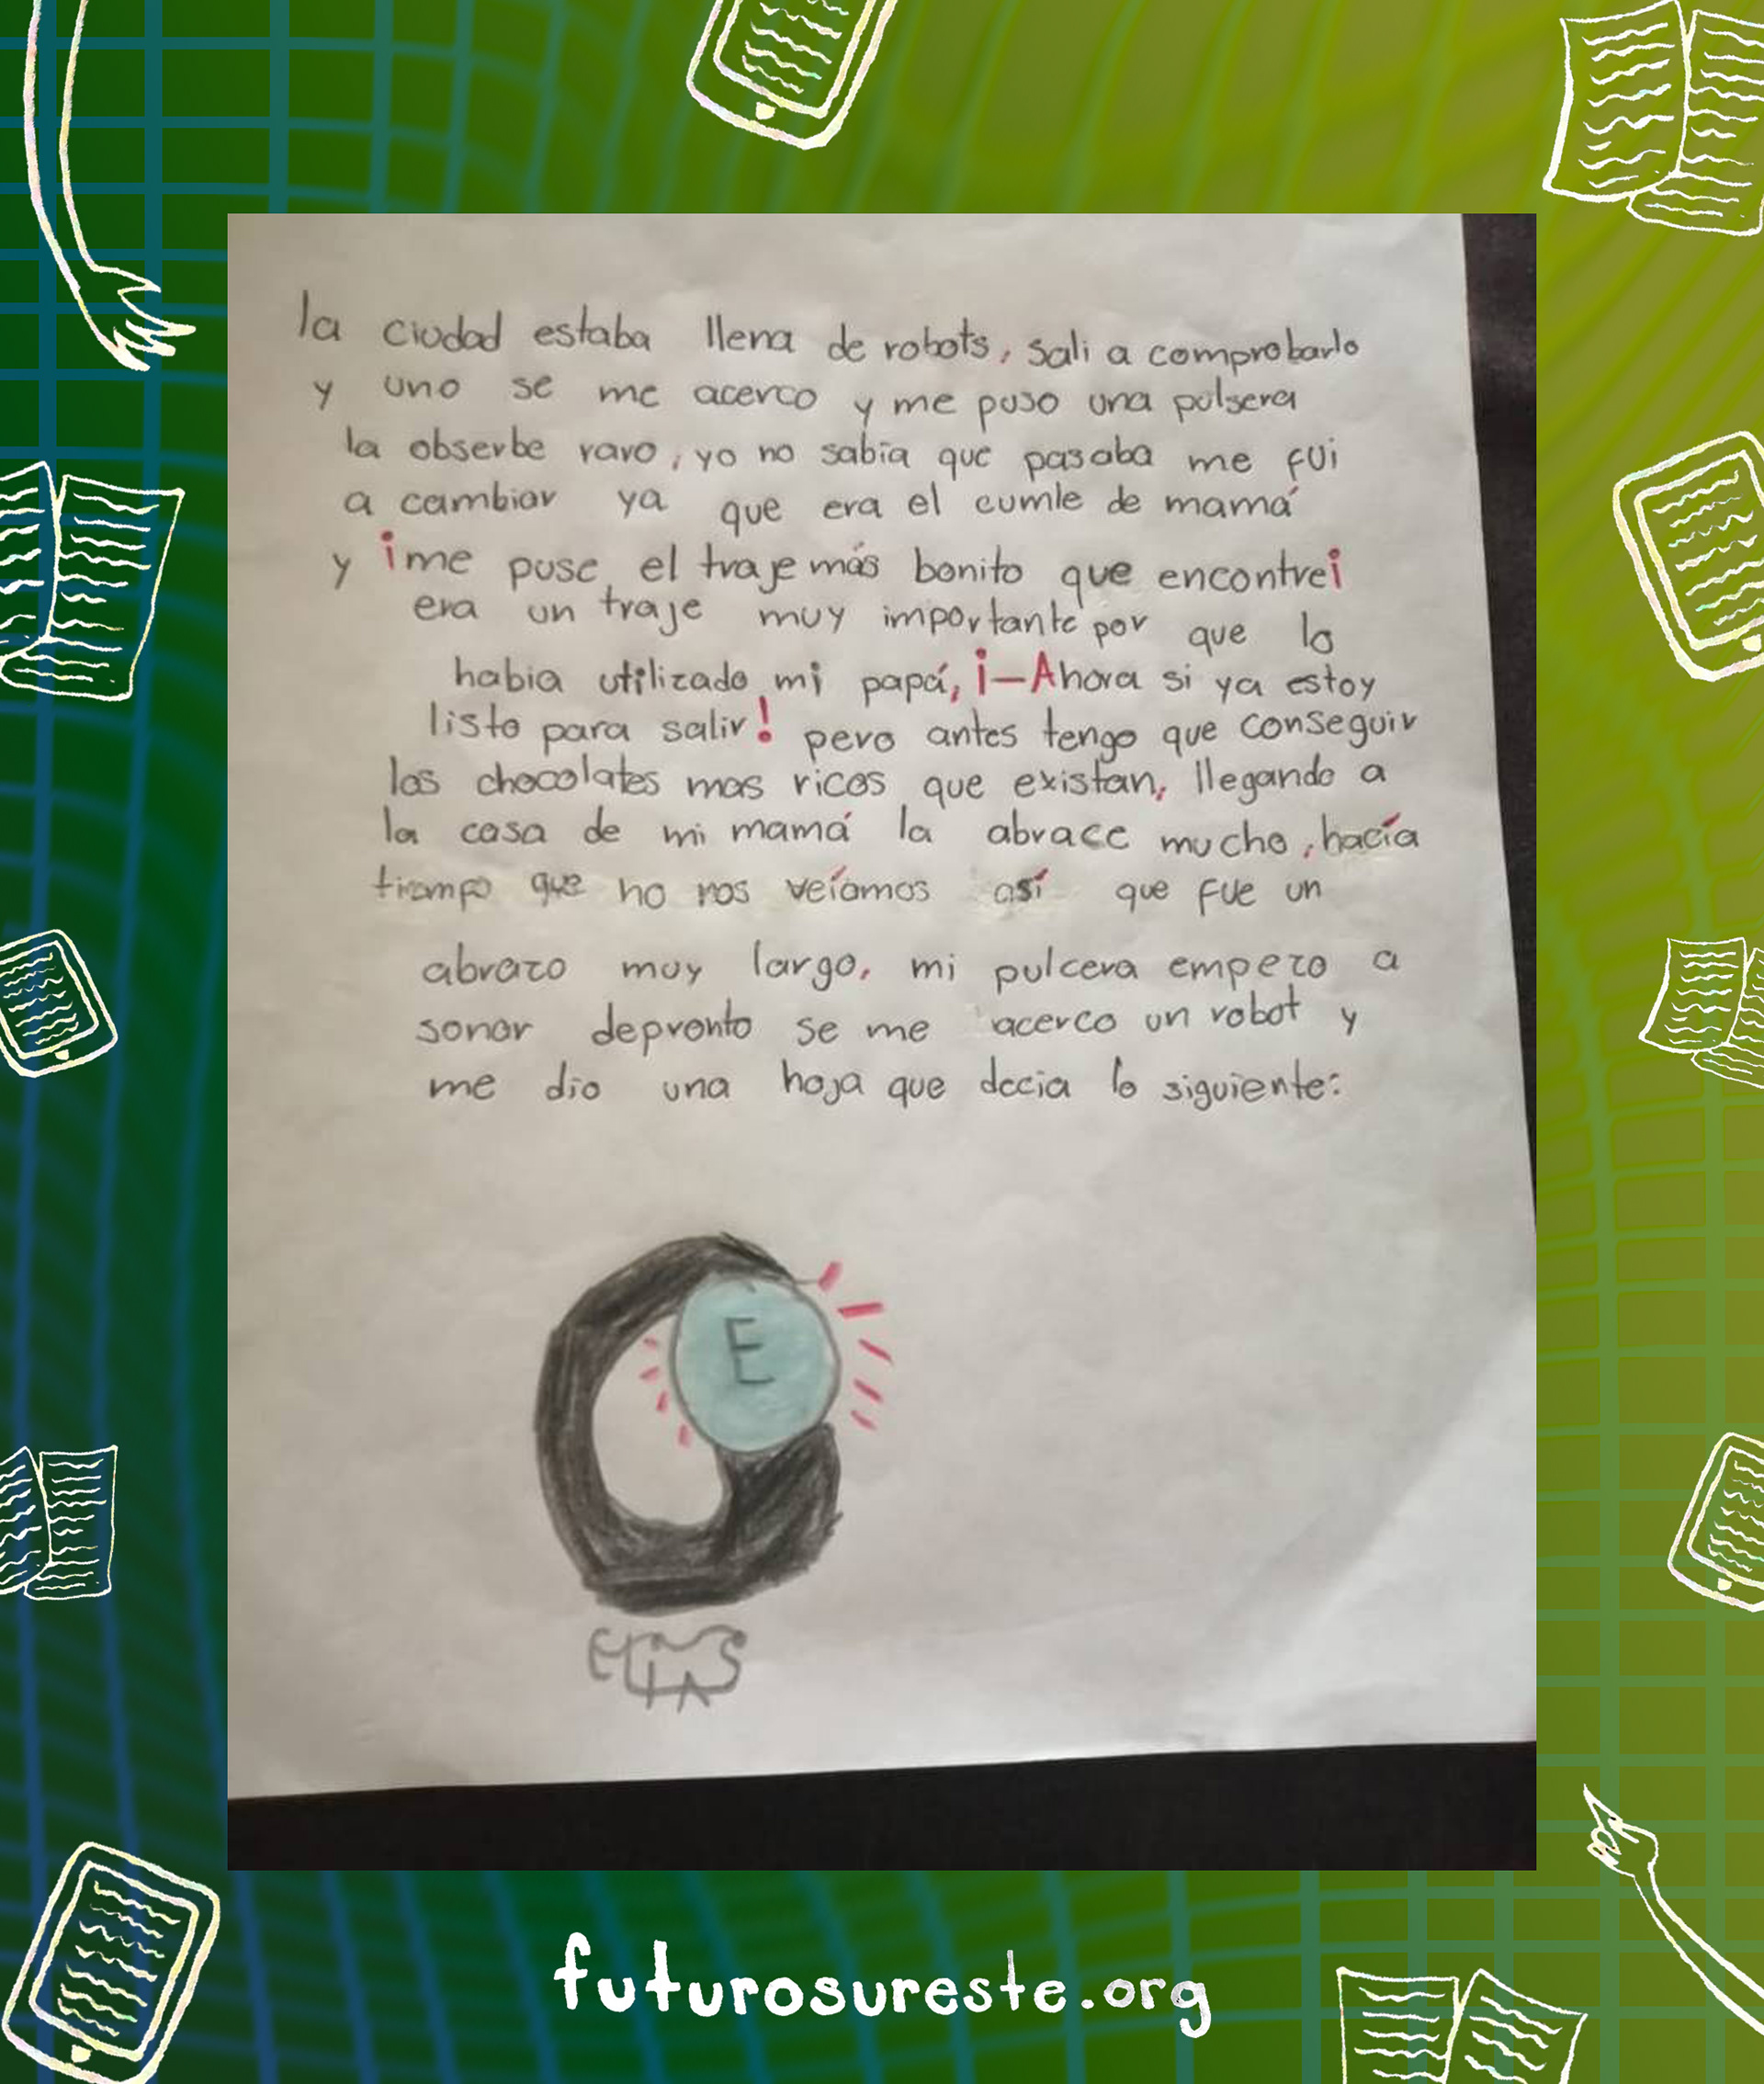 la ciudad estaba llena de robots, sali a comprobarlo
y uno se me acerco y me puso una pulsera
la observe raro, yo no sabia que pasaba me fui
a cambiar ya que era el cumle de mamá
y ¡me puse el traje más bonito que encontre¡
era un traje muy importante por que lo
habia utilizado mi papá, ¡—Ahora si ya estoy
listo para salir! pero antes tengo que conseguir
los chocolates mas ricos que existan, llegando a
la casa de mi mamá la abrace mucho, hacía
tiempo que no nos veíamos así que fue un
abrazo muy largo, mi pulcera empezo a
sonar depronto se me acerco un robot y
me dio una hoja que decia lo siguiente:
E
ELIAS
futurosureste.org